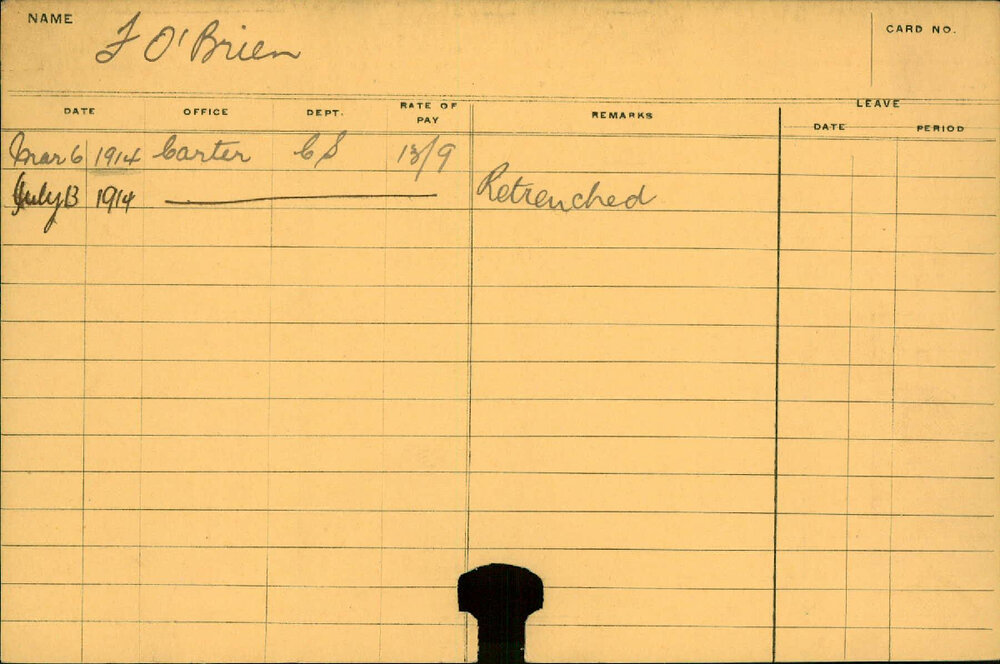 NAME
F O'Brien
CARD NO.
DATE OFFICE DEPT. RATE OF PAY REMARKS LEAVE
DATE PERIOD
Mar 6 1914 Carter CS 13/9
July 13 1914 Retrenched